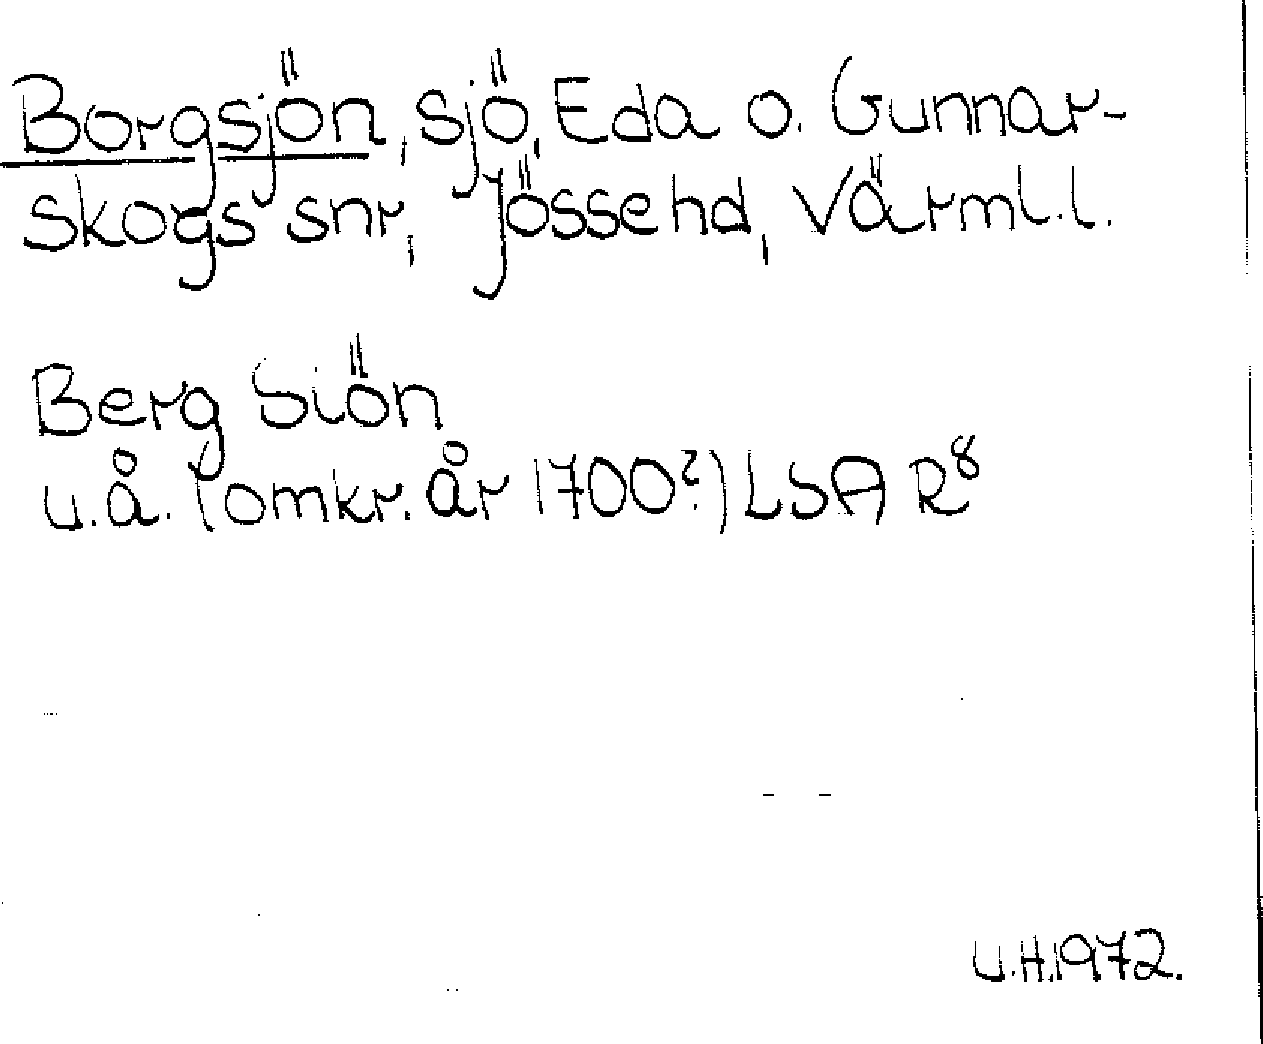 Borgsjön, sjö, Eda o. Gunnar-
skogs snr, Jösse hd, Värml. l.
Berg Siön
u.å. (omkr. år 1700?) LSA R⁸
U.H. 1972.